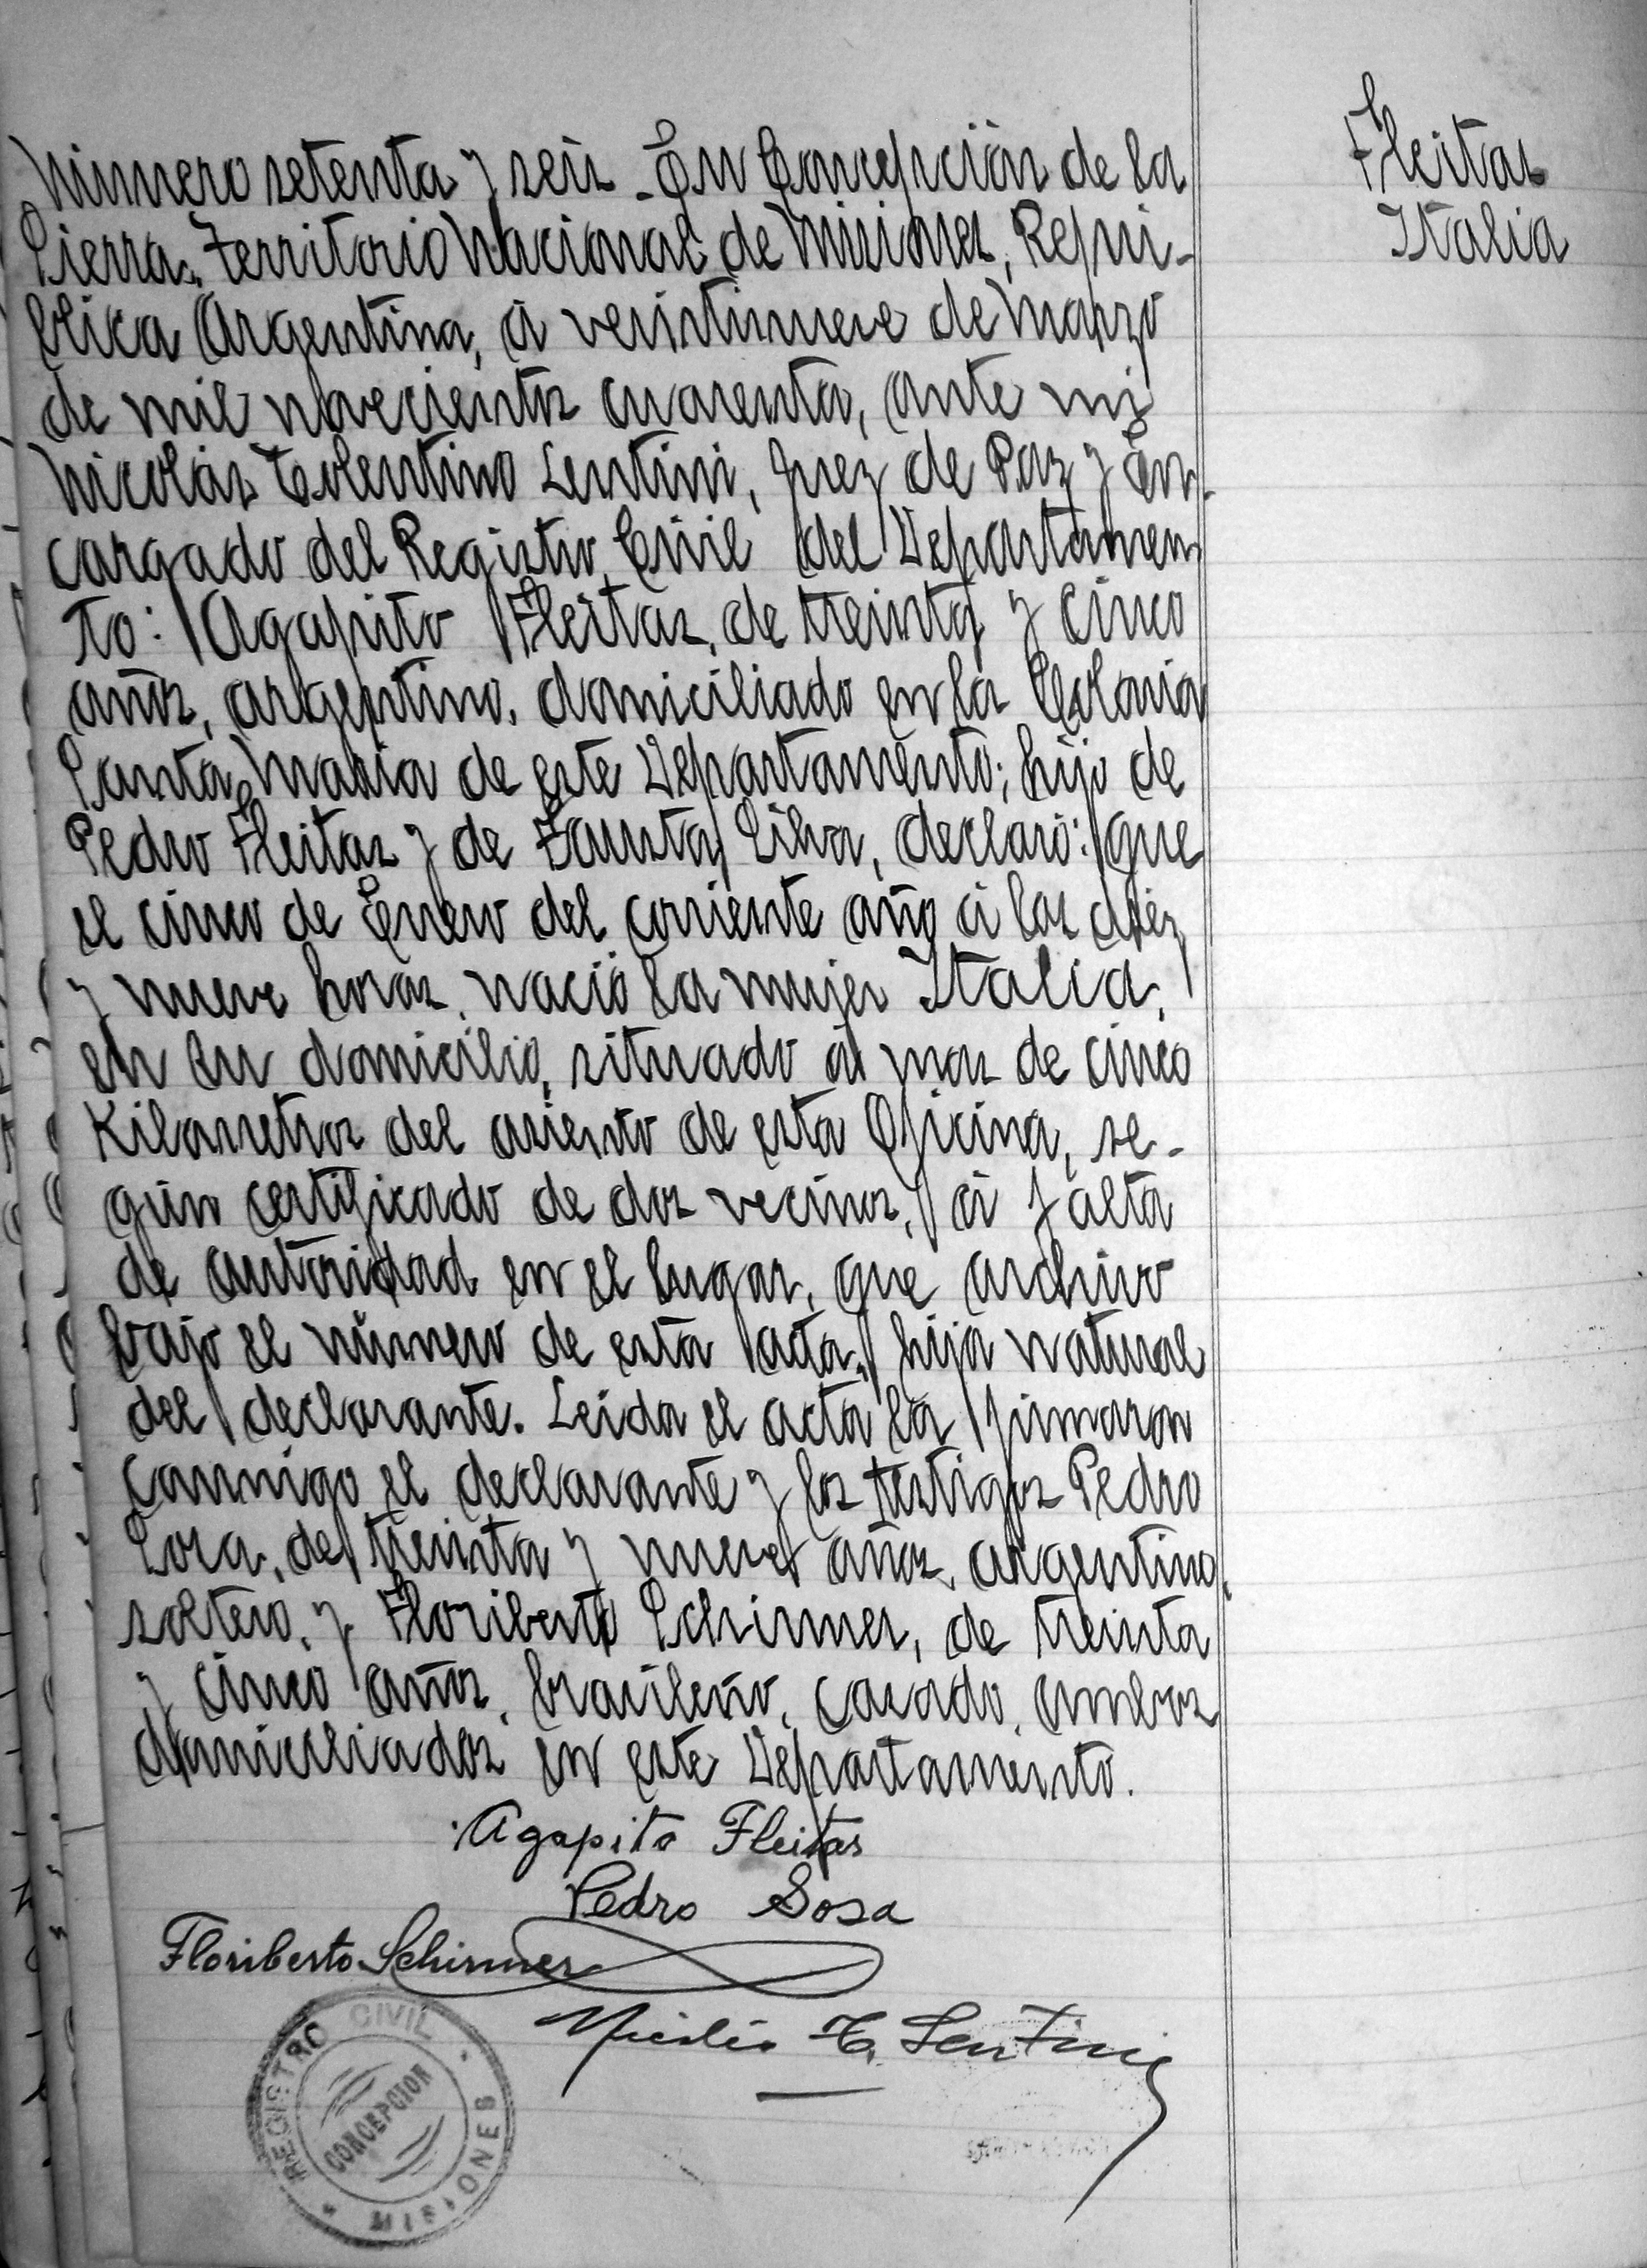 Número setenta y seis. En Concepción de la
Sierra, Territorio Nacional de Misiones, Repú-
blica Argentina, á veintinueve de Marzo
de mil novecientos cuarenta, ante mi
Nicolás Tolentino Lentini, Juez de Paz y En-
cargado del Registro Civil del Departamen
to: Agapito Fleitas, de treinta y cinco
años, argentino, domiciliado en la Colonia
Santa Maria de este Departamento; hijo de
Pedro Fleitas y de Fausta Silva, declaró: que
el cinco de Enero del corriente año á las diez
y nueve horas, nació la mujer Italia,
en su domicilio, situado a mas de cinco
Kilometros del asiento de esta Oficina, se-
gún certificado de dos vecinos, á falta
de autoridad en el lugar, que archivo
bajo el número de esta acta, hija natural
del declarante. Leida el acta la firmaron
conmigo el declarante y los testigos Pedro
Sosa, de treinta y nueve años, argentino,
soltero, y Floriberto Schirmer, de treinta
y cinco años, brasileño, casado, ambos
domiciliados en este Departamento.
Agapito Fleitas
Pedro Sosa
Floriberto Schirmer
Nicolás T. Lentini
REGISTRO CIVIL
CONCEPCION
MISIONES
Fleitas
Italia